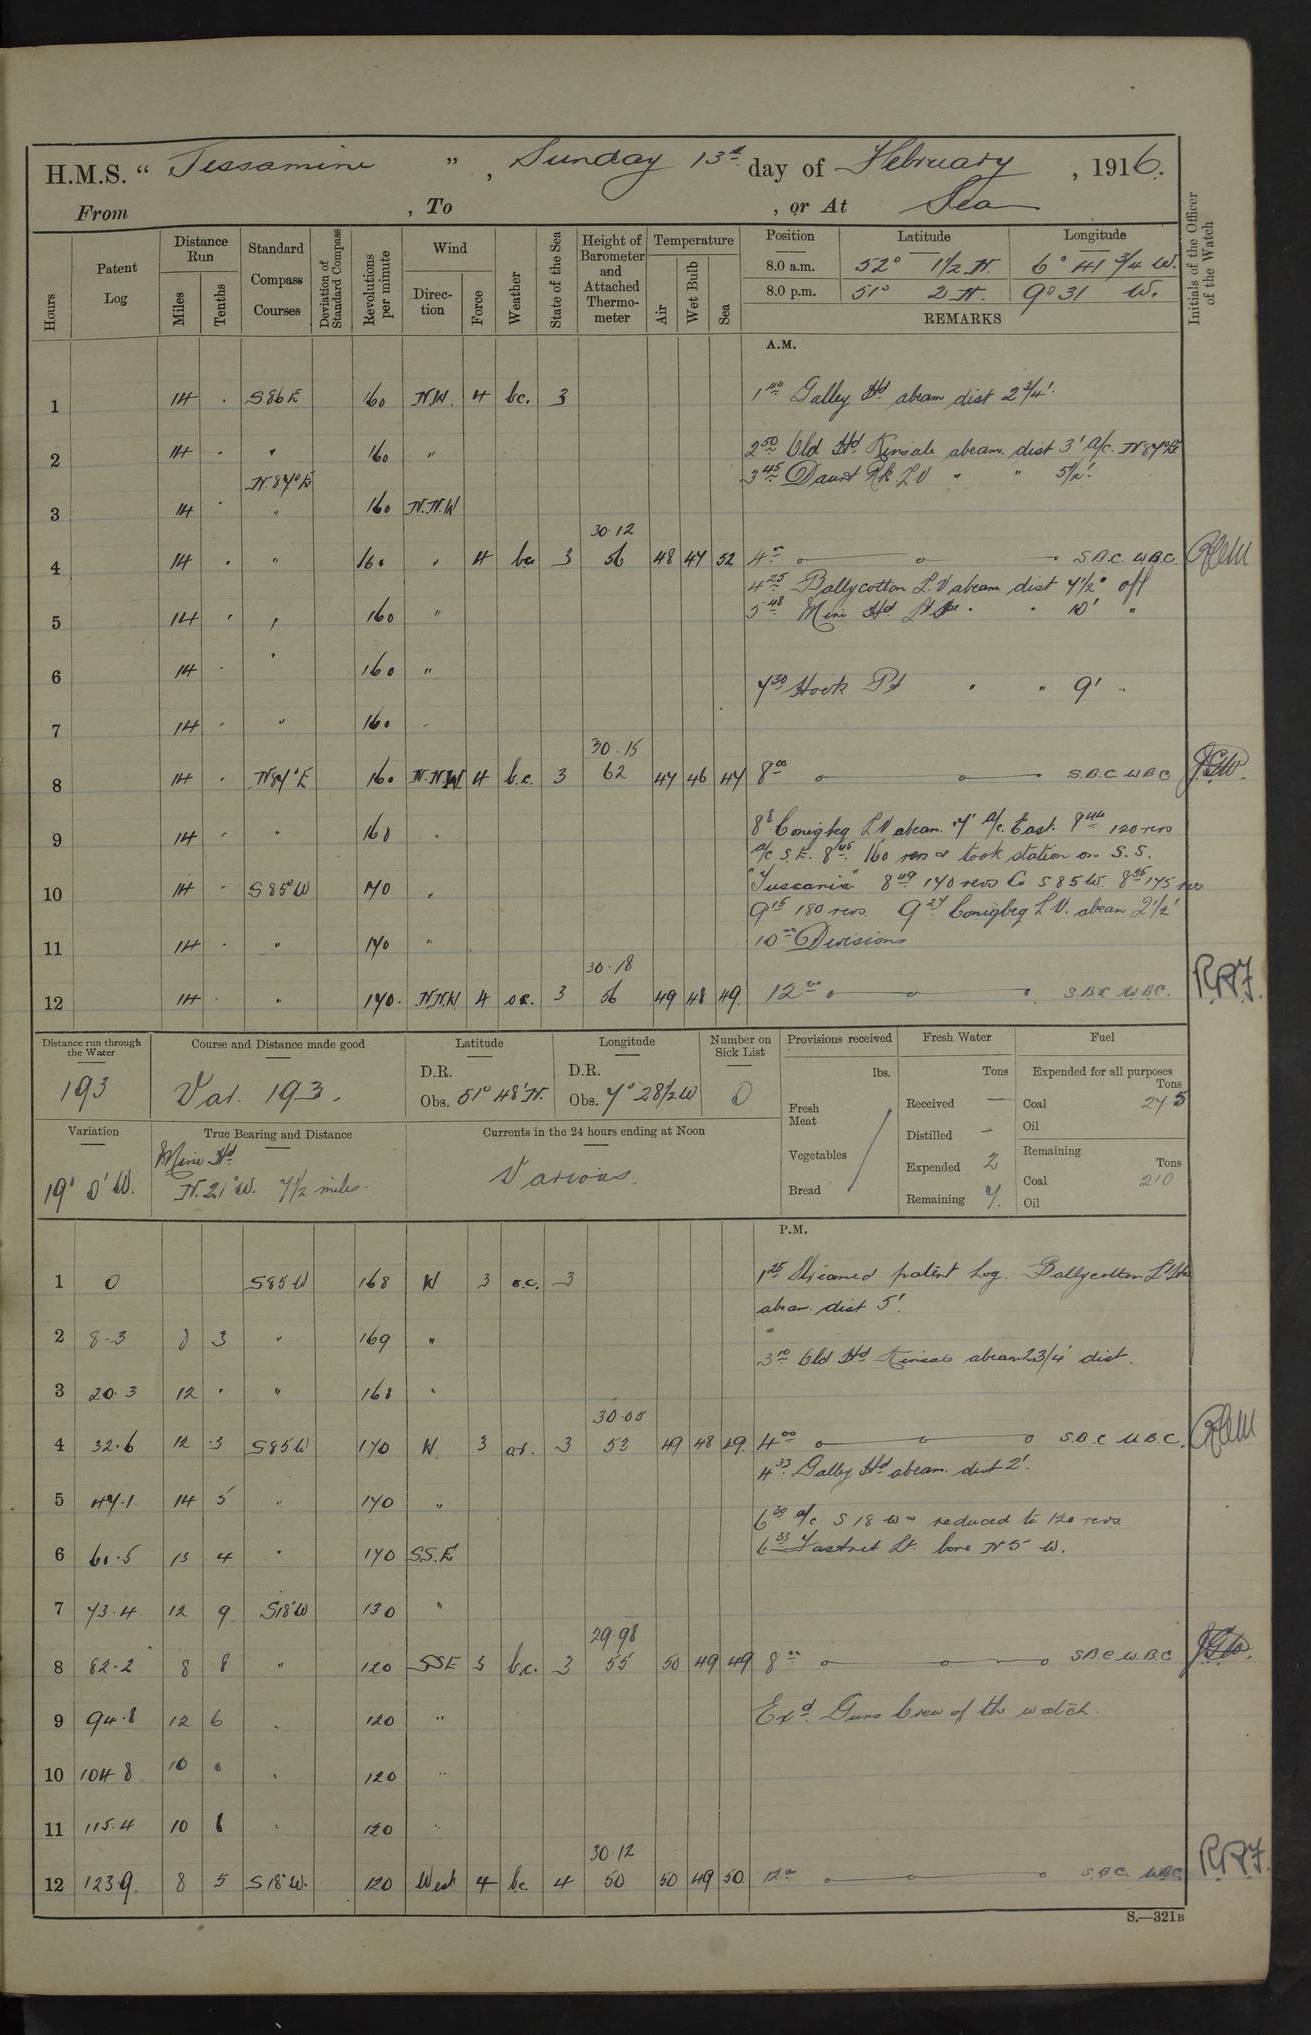 H.M.S. “ Jessamine ”, Sunday 13th day of February, 1916.
From , To , or At Sea
Hours
Patent Log
Distance Run
Miles
Tenths
Standard Compass Courses
Deviation of Standard Compass
Revolutions per minute
Wind
Direction
Force
Weather
State of the Sea
Height of Barometer and Attached Thermometer
Temperature
Air
Wet Bulb
Sea
Position Latitude Longitude
8.0 a.m. 52° 1 1/2 N. 6° 41 3/4 W.
8.0 p.m. 51° 2 N. 9° 31 W.
REMARKS
Initials of the Officer of the Watch
A.M.
1 14 . S86E 160 N.W. 4 bc. 3 1 40 Galley Hd abeam dist 2 3/4'
2 14 . " 160 " 2 50 Old Hd Kinsale abeam. dist 3' A/c. N87°E
N.87°E 3 45 Daunt Rk L V " " 5 1/2'
3 14 . " 160 N.N.W
30.12
4 14 . " 160 " 4 bc 3 56 48 47 52 4 00 S.B.C. W.B.C.
4 25 Ballycotton L.V abeam dist 7 1/2" off
5 14 . " 160 " 5 48 Mine Hd 10' "
6 14 . " 160 "
7 30 Hook Pt " " 9' "
7 14 . " 160 "
30.15
8 14 . N87°E 160 N.N.W 4 b.c. 3 62 47 46 47 8 00 S.B.C. W.B.C
9 14 . " 168 " 8 8 Conigbeg L V abeam 7' A/c. East. 8 44 120 revs
A/c S.E. 8 45 160 revs & took station on S.S.
10 14 . S85°W 170 " "Tuscania" 8 49 170 revs Co S85W. 8 55 175 revs
9 15 180 revs. 9 27 Conigbeg L V. abeam 2 1/2'
11 14 . " 170 " 10 00 Divisions
30.18
12 14 . " 170 N.N.W 4 oc. 3 56 49 48 49. 12 00 S.B.C W.B.C. R.R.F.
Distance run through the Water
193
Course and Distance made good
Var. 193.
Latitude
D.R.
Obs. 51° 48' N.
Longitude
D.R.
Obs. 7° 28 1/2 W
Number on Sick List
0
Provisions received
lbs.
Fresh Meat
Vegetables
Bread
Fresh Water
Tons
Received —
Distilled —
Expended 2
Remaining 7.
Fuel
Expended for all purposes
Tons
Coal 27 5
Oil
Remaining
Tons
Coal 210
Oil
Variation
19° 0' W.
True Bearing and Distance
Mine Hd
N. 21° W. 7 1/2 miles.
Currents in the 24 hours ending at Noon
Various.
P.M.
1 0 S85W 168 W 3 o.c. 3 1 25 Streamed patent Log. Ballycotton Lt
abeam dist 5'.
2 8.3 8 3 " 169 "
3 10 Old Hd Kinsale abeam 2 3/4' dist.
3 20.3 12 . " 168 "
30.05
4 32.6 12 .3 S85W 170 W. 3 3 53 49 48 49. 4 00 S.B.C W.B.C.
4 33 Galley Hd abeam. dist 2'.
5 47.1 14 5 " 170 "
6 30 A/c S 18 W & reduced to 120 revs
6 60.5 13 4 " 170 S.S.E 6 33 Fastnet Lt. bore N 5 W.
7 73.4 12 9 S18°W 130 "
29.98
8 82.2 8 8 " 120 SSE 3 b.c. 3 55 50 49 49 8 00 S.B.C W.B.C
9 94.8 12 6 " 120 " Exd. Guns Crew of the watch.
10 104 8 10 0 " 120 "
11 115.4 10 6 " 120 "
30.12
12 123.9. 8 5 S18°W. 120 West 4 bc. 4 50 50 49 50 12 00 S.B.C. W.B.C. R.R.F.
S.—321B